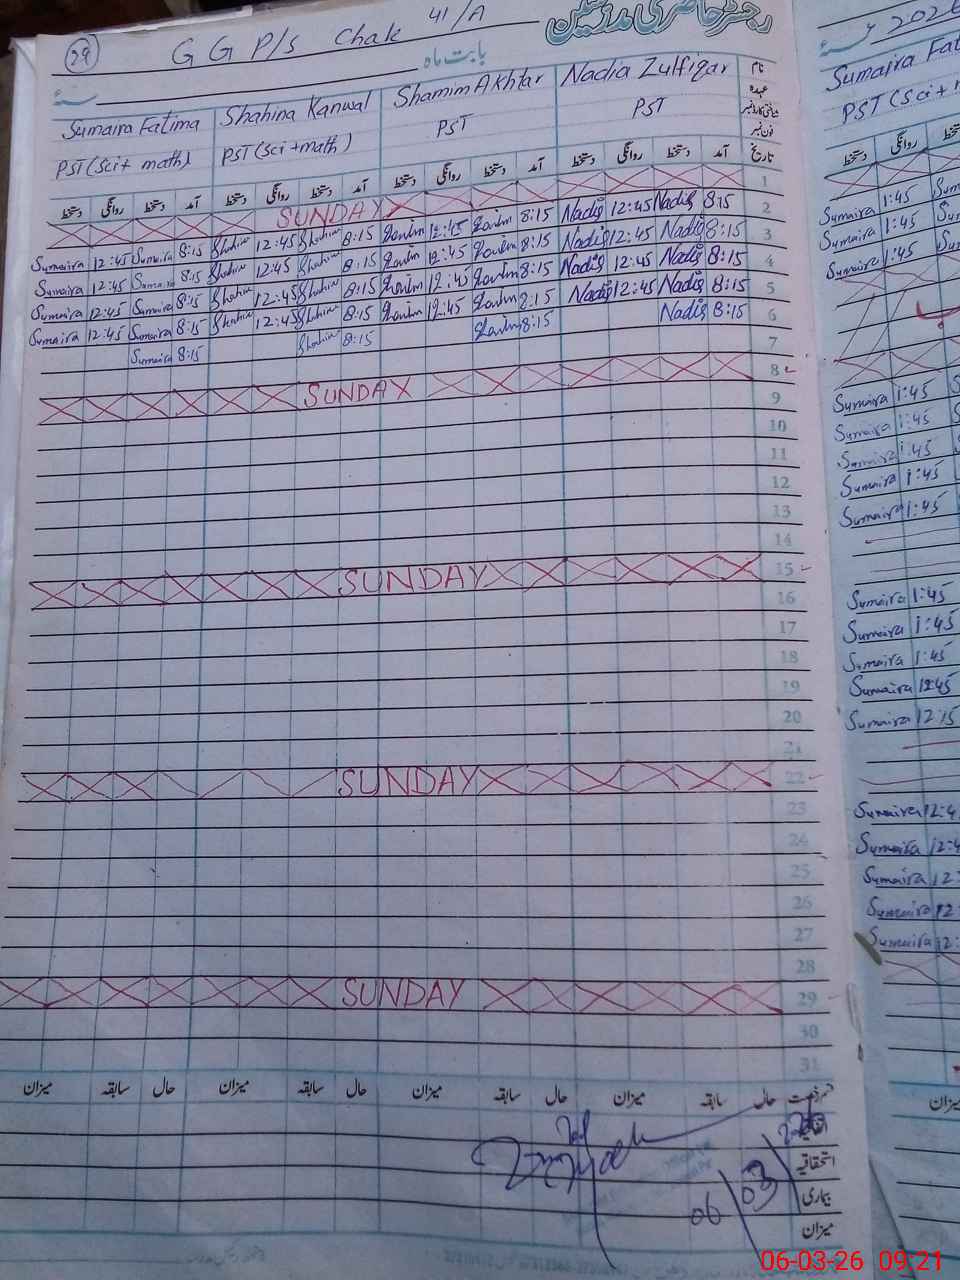 29
G G P/s Chak 41/A
رجسٹر حاضری مدرسین
بابت ماہ
سنۂ
نام
عہدہ
شناختی کارڈ نمبر
فون نمبر
Nadia Zulfiqar
PST
Shamim Akhtar
PST
Shahina Kanwal
PST (Sci + math)
Sumaira Fatima
PST (Sci + math)
تاریخ آمد دستخط روانگی دستخط آمد دستخط روانگی دستخط آمد دستخط روانگی دستخط آمد دستخط روانگی دستخط
1 SUNDAY
2 8:15 Nadia 12:45 Nadia 8:15 12:45 8:15 Shahina 12:45 Shahina 8:15 Sumaira 12:45 Sumaira
3 8:15 Nadia 12:45 Nadia 8:15 12:45 8:15 Shahina 12:45 Shahina 8:15 Sumaira 12:45 Sumaira
4 8:15 Nadia 12:45 Nadia 8:15 12:45 8:15 Shahina 12:45 Shahina 8:15 Sumaira 12:45 Sumaira
5 8:15 Nadia 12:45 Nadia 8:15 12:45 8:15 Shahina 12:45 Shahina 8:15 Sumaira 12:45 Sumaira
6 8:15 Nadia 8:15 8:15 Shahina 8:15 Sumaira
7
8 SUNDAY
9
10
11
12
13
14
15 SUNDAY
16
17
18
19
20
21
22 SUNDAY
23
24
25
26
27
28
29 SUNDAY
30
31
حال سابقہ میزان حال سابقہ میزان حال سابقہ میزان حال سابقہ میزان
اتفاقیہ
استحقاقیہ
بیماری
میزان
06 03
سنۂ 2026
Sumaira Fat
PST (Sci + m
روانگی دستخط
Sumaira 1:45
Sumaira 1:45
Sumaira 1:45
Sumaira 1:45
Sumaira 1:45
Sumaira 1:45
Sumaira 1:45
Sumaira 1:45
Sumaira 1:45
Sumaira 1:45
Sumaira 1:45
Sumaira 12:45
Sumaira 12:15
Sumaira 12:4
Sumaira 12:4
Sumaira 12:
Sumaira 12:
Sumaira 12:
میزان
06-03-26 09:21